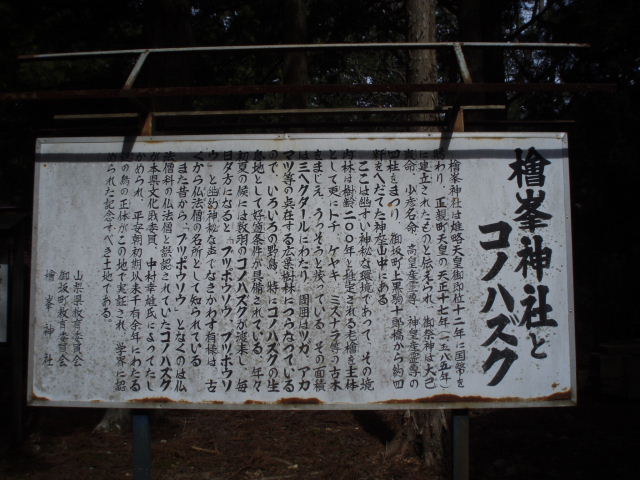 檜峯神社と
コノハズク
檜峯神社は雄略天皇御即位十二年に国幣を
賜わり、正親町天皇の天正十七年(一五八五年)
に建立されたものと伝えられ、御祭神は大己
貴命、少彦名命、高皇産霊尊、神皇産霊尊の
四柱をまつり、御坂町上黒駒十郎橋から約四
粁をへだてた神座山中にある
ここは幽すい神秘な環境であって、その境
内林は樹齢二〇〇年と推定される老檜を主体
として更にトチ、ケヤキ、ミズナラ等の古木
をまじえ、うっそうと茂っている。その面積
は三ヘクタールにわたり、周囲はツガ、アカ
マツ等の混在する広葉樹林につらなっている
ので、いろいろの野鳥、特にコノハズクの生
息地として好適条件が具備されている。年々
初夏の候には数羽のコノハズクが渡来し、毎
日夕方になると「ブッポウソウ、ブッポウソ
ウ」と幽妙神秘な声でなきかわす有様は、古
くから仏法僧の名所として知られている
また昔から「ブッポウソウ」となくのは仏
法僧科の仏法僧と誤認されていたコノハズク
が本県文化財委員、中村幸雄氏によってたし
かめられ、平安朝初期以来千有余年にわたる
この鳥の正体がこの地で実証され、学界に認
められた記念すべき土地である。
山梨県教育委員会
御坂町教育委員会
檜峯神社